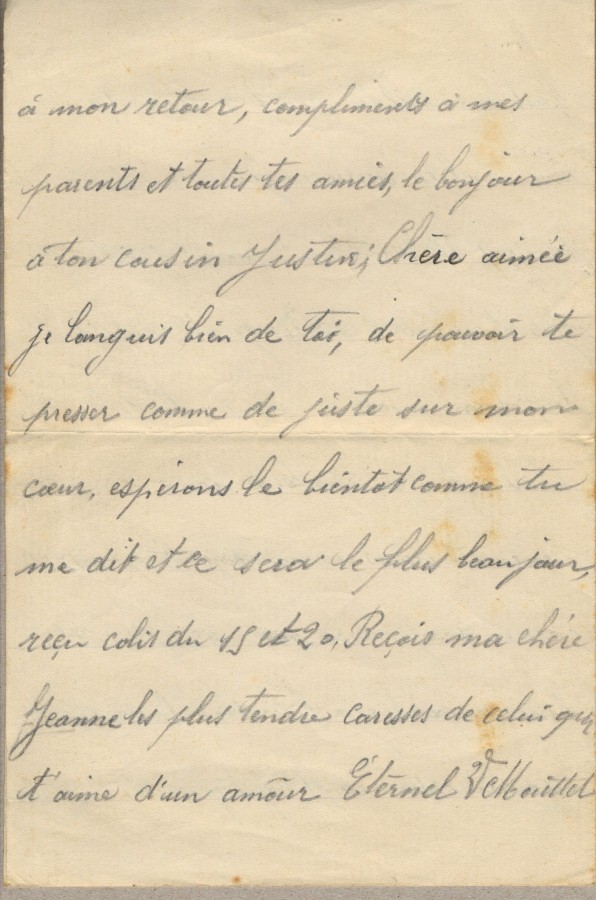 à mon retour, compliments à mes
parents et toutes tes amies, le bonjour
à ton cousin Justin; Chère aimée
je languis bien de toi, de pouvoir te
presser comme de juste sur mon
cœur, espérons le bientot comme tu
me dit et ce sera le plus beau jour,
reçu colis du 15 et 20, Reçois ma chère
Jeanne les plus tendre caresses de celui qui
t'aime d'un amour Éternel